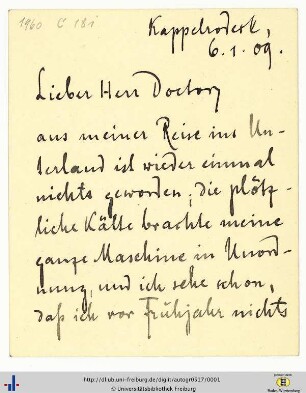 1960 C 181
Kappelrodeck,
6.1.09.
Lieber Herr Doctor,
aus meiner Reise ins Un-
terland ist wieder einmal
nichts geworden; die plötz-
liche Kälte brachte meine
ganze Maschine in Unord-
nung, und ich sehe schon,
daß ich vor Frühjahr nichts
http://dl.ub.uni-freiburg.de/diglit/autogr0517/0001
© Universitätsbibliothek Freiburg
Baden-Württemberg